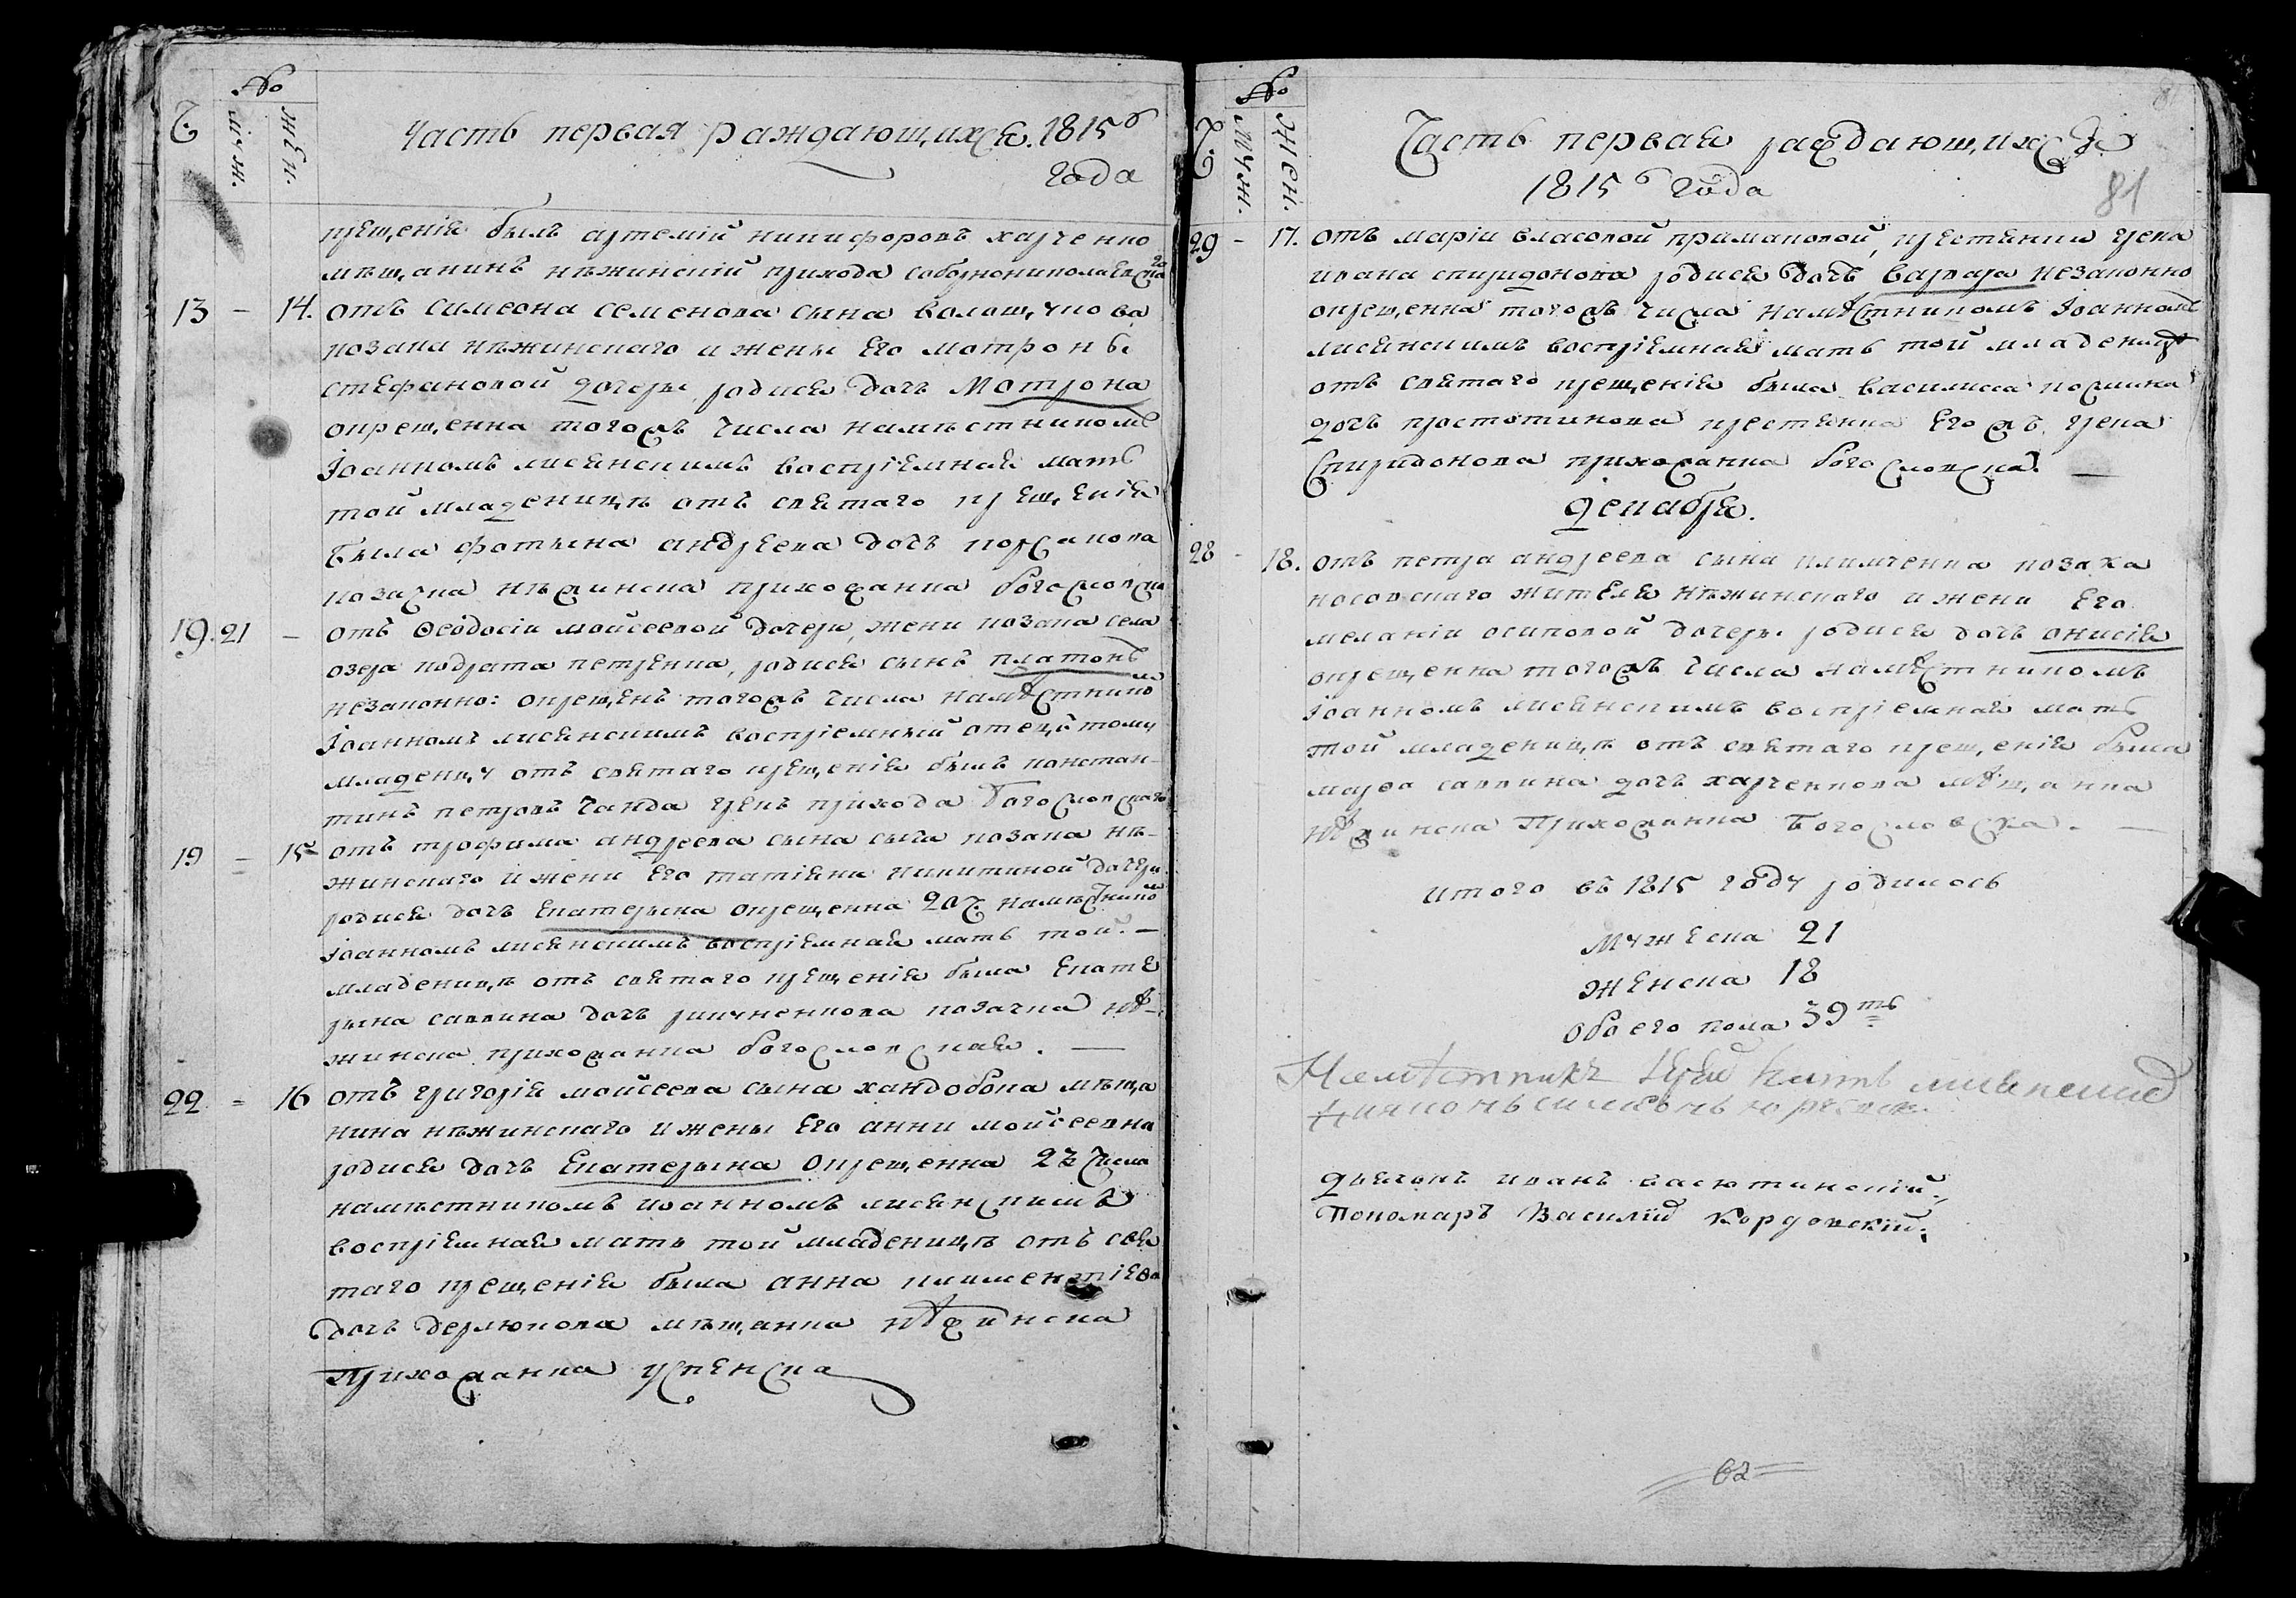 №
Ч. муж. жен.
Часть первая раждающихся. 1815го
года
крещенія былъ артемій никифоровъ харченко
мѣщанинъ нѣжинскій прихода соборнониколаевскаго
13 - 14. отъ симеона семенова сына волощукова
козака нѣжинскаго и жены его мотроны
стефановой дочеры родися дочъ Мотрона
окрещенна тогожъ числа намѣстникомъ
Іоанномъ лисянскимъ воспріемная мать
той младеницѣ отъ святаго крещенія
была фотына андреева дочъ корсакова
козачка нѣжинска прихожанка богословска
19. 21 - отъ Ѳеодосіи мойсеевой дочери, жени козака села
озера кодрата петренка, родися сынъ платонъ
незаконно: окрещенъ тогожъ числа намѣстникомъ
Іоанномъ лисянскимъ воспріемный отецъ тому
младенцу отъ святаго крещенія былъ констан-
тинъ петровъ чайда грекъ прихода Богословскаго
19 = 15 отъ трофима андреева сына сыча козака нѣ-
жинскаго и жени его татіяни никитиной дочери
родися дочъ Екатерына окрещенна 20 ч. намѣстникомъ
Іоанномъ лисянскимъ воспріемная мать той. –
младеницѣ отъ святаго крещенія была Екате
рына саввина дочъ козачка нѣ-
жинска прихожанка богословская. —
22 = 16 отъ григорія мойсеева сына хандобока мѣща
нина нѣжинскаго и жены его анни мойсеевна
родися дочъ Екатерына окрещенна числа
намѣстникомъ иоанномъ лисянскимъ
воспріемная мать той младеницѣ отъ свя
таго крещенія была анна климентіева
дочъ дерлюкова мѣщанка нѣжинска
Прихожанка успенска
№
Ч. Муж. Жен.
Часть первая раждающихся
1815го года
81
29 - 17. отъ маріи власовой примаковой, крестянки грека
ивана спиридонова родися дочъ варвара незаконно
окрещенна тогожъ числа намѣстникомъ Іоанномъ
лисянскимъ воспріемная мать той младеницѣ
отъ святаго крещенія была василиса
дочъ крестянка егожъ грека
Спиридонова прихожанка богословска. —
декабря.
28 - 18. отъ петра андреева сына климченка козака
носовскаго жителя нѣжинскаго и жени его
меланіи осиповой дочеры родися дочъ онисія
окрещенна тогожъ числа намѣстникомъ
Іоанномъ лисянскимъ воспріемная мать
той младеницѣ отъ святаго крещенія была
марѳа саввина дочъ харченкова мѣщанка
нѣжинска Прихожанка Богословска. —
итого въ 1815 году родилось
мужеска 21
женска 18
обоего пола 39ть
Намѣстникъ Іерей лисянскій
дьячокъ иванъ васютинскій.
Пономаръ Василій Кордовскій.
62